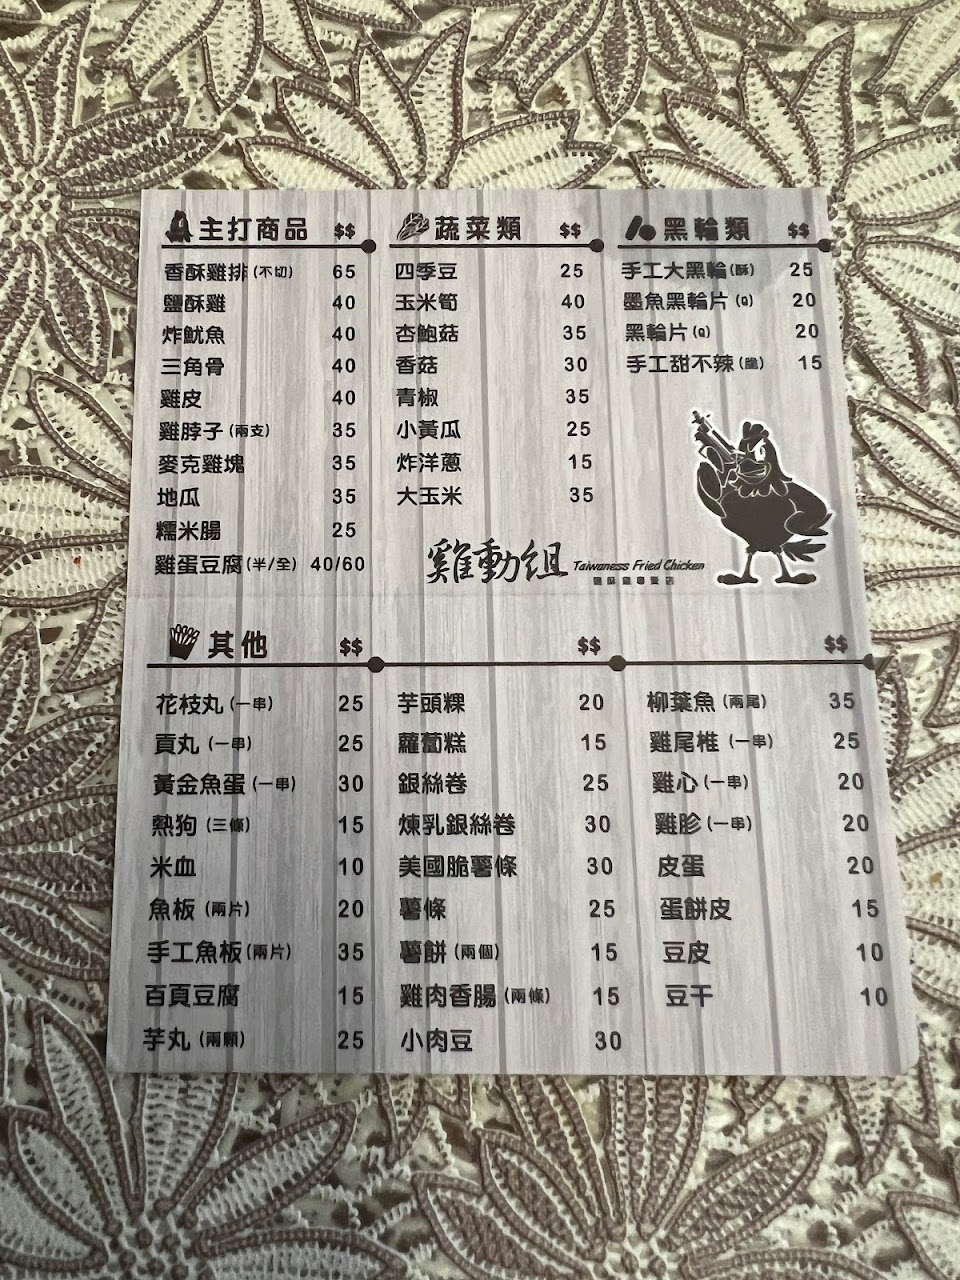 主打商品 $$
香酥雞排(不切) 65
鹽酥雞 40
炸魷魚 40
三角骨 40
雞皮 40
雞脖子(兩支) 35
麥克雞塊 35
地瓜 35
糯米腸 25
雞蛋豆腐(半/全) 40/60
蔬菜類 $$
四季豆 25
玉米筍 40
杏鮑菇 35
香菇 30
青椒 35
小黃瓜 25
炸洋蔥 15
大玉米 35
黑輪類 $$
手工大黑輪(酥) 25
墨魚黑輪片(Q) 20
黑輪片(Q) 20
手工甜不辣(脆) 15
雞動組 Taiwaness Fried Chicken
鹽酥雞專賣店
其他 $$
花枝丸(一串) 25
貢丸(一串) 25
黃金魚蛋(一串) 30
熱狗(三條) 15
米血 10
魚板(兩片) 20
手工魚板(兩片) 35
百頁豆腐 15
芋丸(兩顆) 25
$$
芋頭粿 20
蘿蔔糕 15
銀絲卷 25
煉乳銀絲卷 30
美國脆薯條 30
薯條 25
薯餅(兩個) 15
雞肉香腸(兩條) 15
小肉豆 30
$$
柳葉魚(兩尾) 35
雞尾椎(一串) 25
雞心(一串) 20
雞胗(一串) 20
皮蛋 20
蛋餅皮 15
豆皮 10
豆干 10